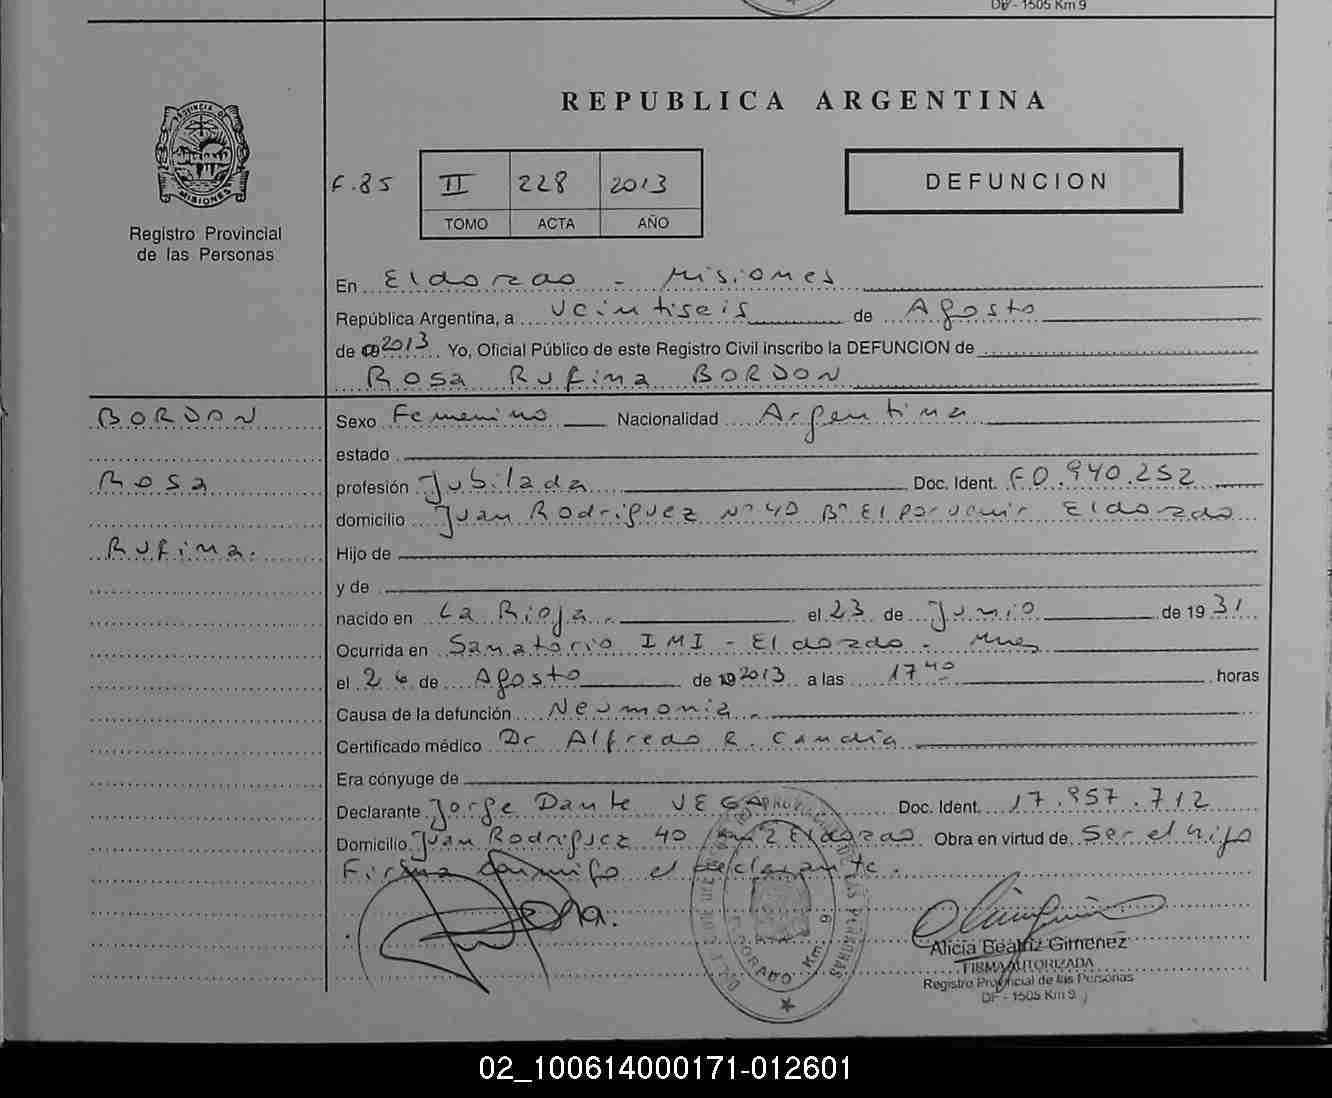 DF - 1505 Km 9
PROVINCIA D
MISIONES
Registro Provincial
de las Personas
REPUBLICA ARGENTINA
F.85 II 228 2013
TOMO ACTA AÑO
DEFUNCION
En Eldorado - Misiones
República Argentina, a veintiseis de Agosto
de 2013. Yo, Oficial Público de este Registro Civil inscribo la DEFUNCION de
Rosa Rufina BORDON
BORDON
Rosa
Rufina.
Sexo Femenino Nacionalidad Argentina
estado
profesión Jubilada Doc. Ident. F0.940.252
domicilio Juan Rodriguez Nº 40 Bº El porvenir Eldorado
Hijo de
y de
nacido en La Rioja. el 23 de Junio de 1931
Ocurrida en Sanatorio IMI - Eldorado - Mnes
el 26 de Agosto de 2013 a las 17 40 horas
Causa de la defunción Neumonia
Certificado médico Dr Alfredo R. Candia
Era cónyuge de
Declarante Jorge Dante VEGA Doc. Ident. 17.957.712
Domicilio Juan Rodriguez 40 Km 2 Eldorado Obra en virtud de Ser el hijo
Firma conmigo el declarante.
ELDORADO Km. 9
Alicia Beatriz Gimenez
FIRMA AUTORIZADA
Registro Provincial de las Personas
DF - 1505 Km 9
02_100614000171-012601